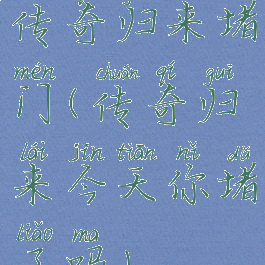 传奇归来堵
mén chuán qí guī
门(传奇归
lái jīn tiān nǐ dǔ
来今天你堵
liǎo ma
了吗)